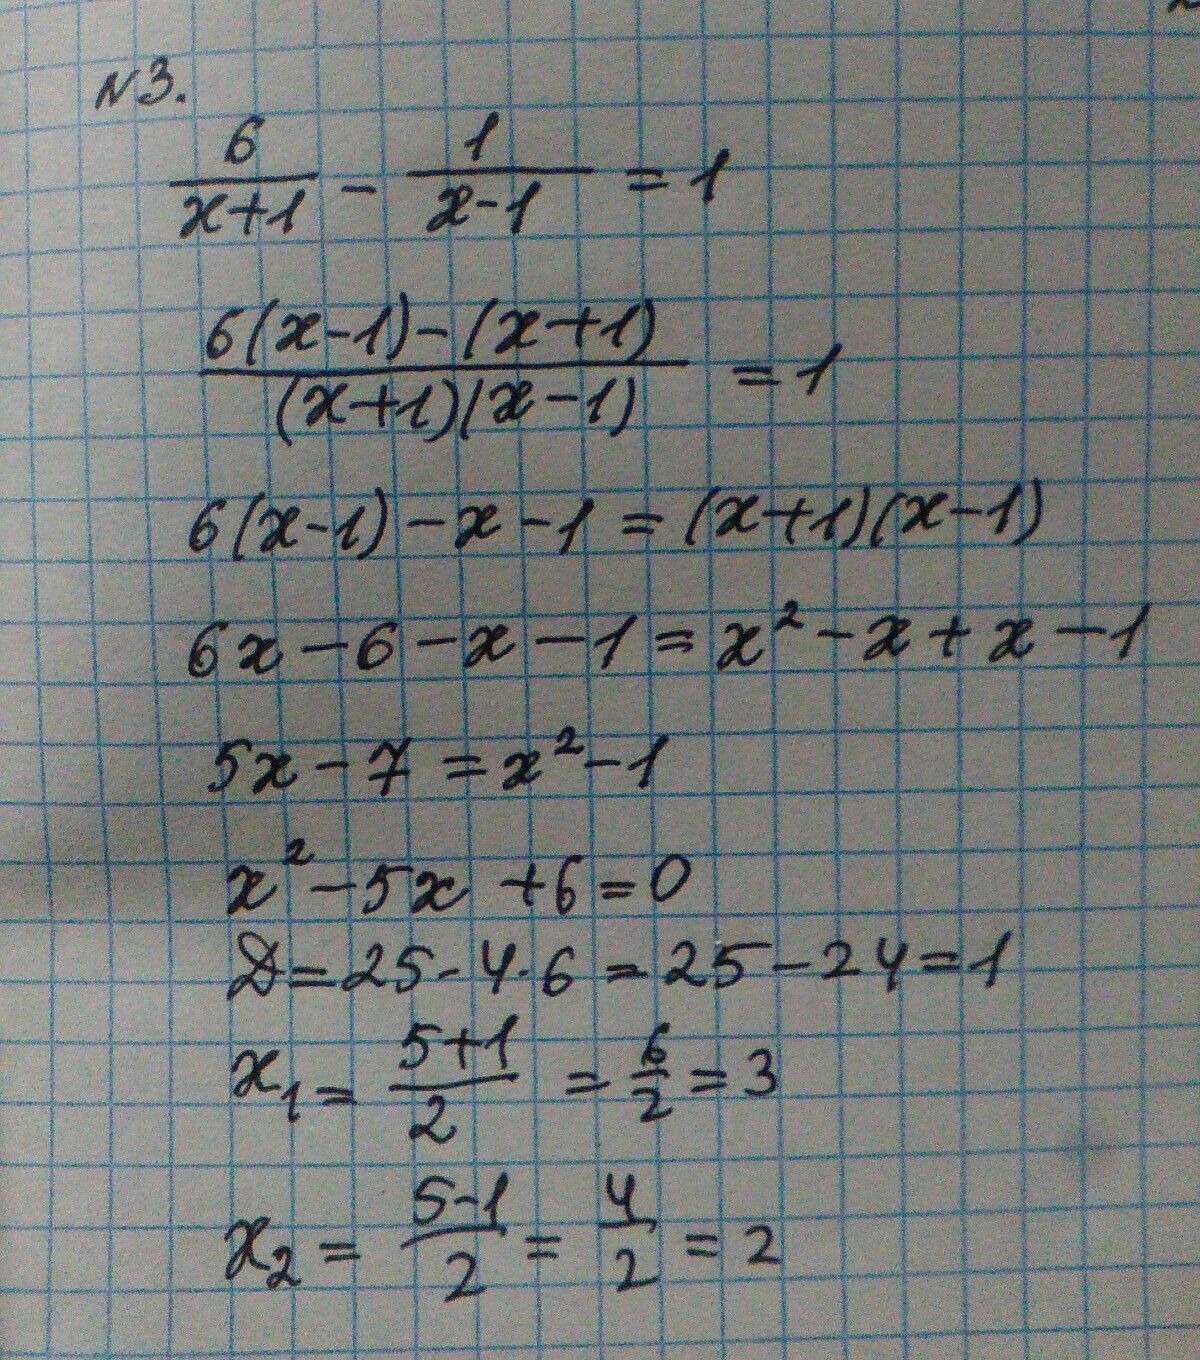 N3.
6/(x+1) - 1/(x-1) = 1
(6(x-1)-(x+1))/((x+1)(x-1)) = 1
6(x-1)-x-1=(x+1)(x-1)
6x-6-x-1=x²-x+x-1
5x-7=x²-1
x²-5x+6=0
D=25-4·6=25-24=1
x₁=(5+1)/2=6/2=3
x₂=(5-1)/2=4/2=2